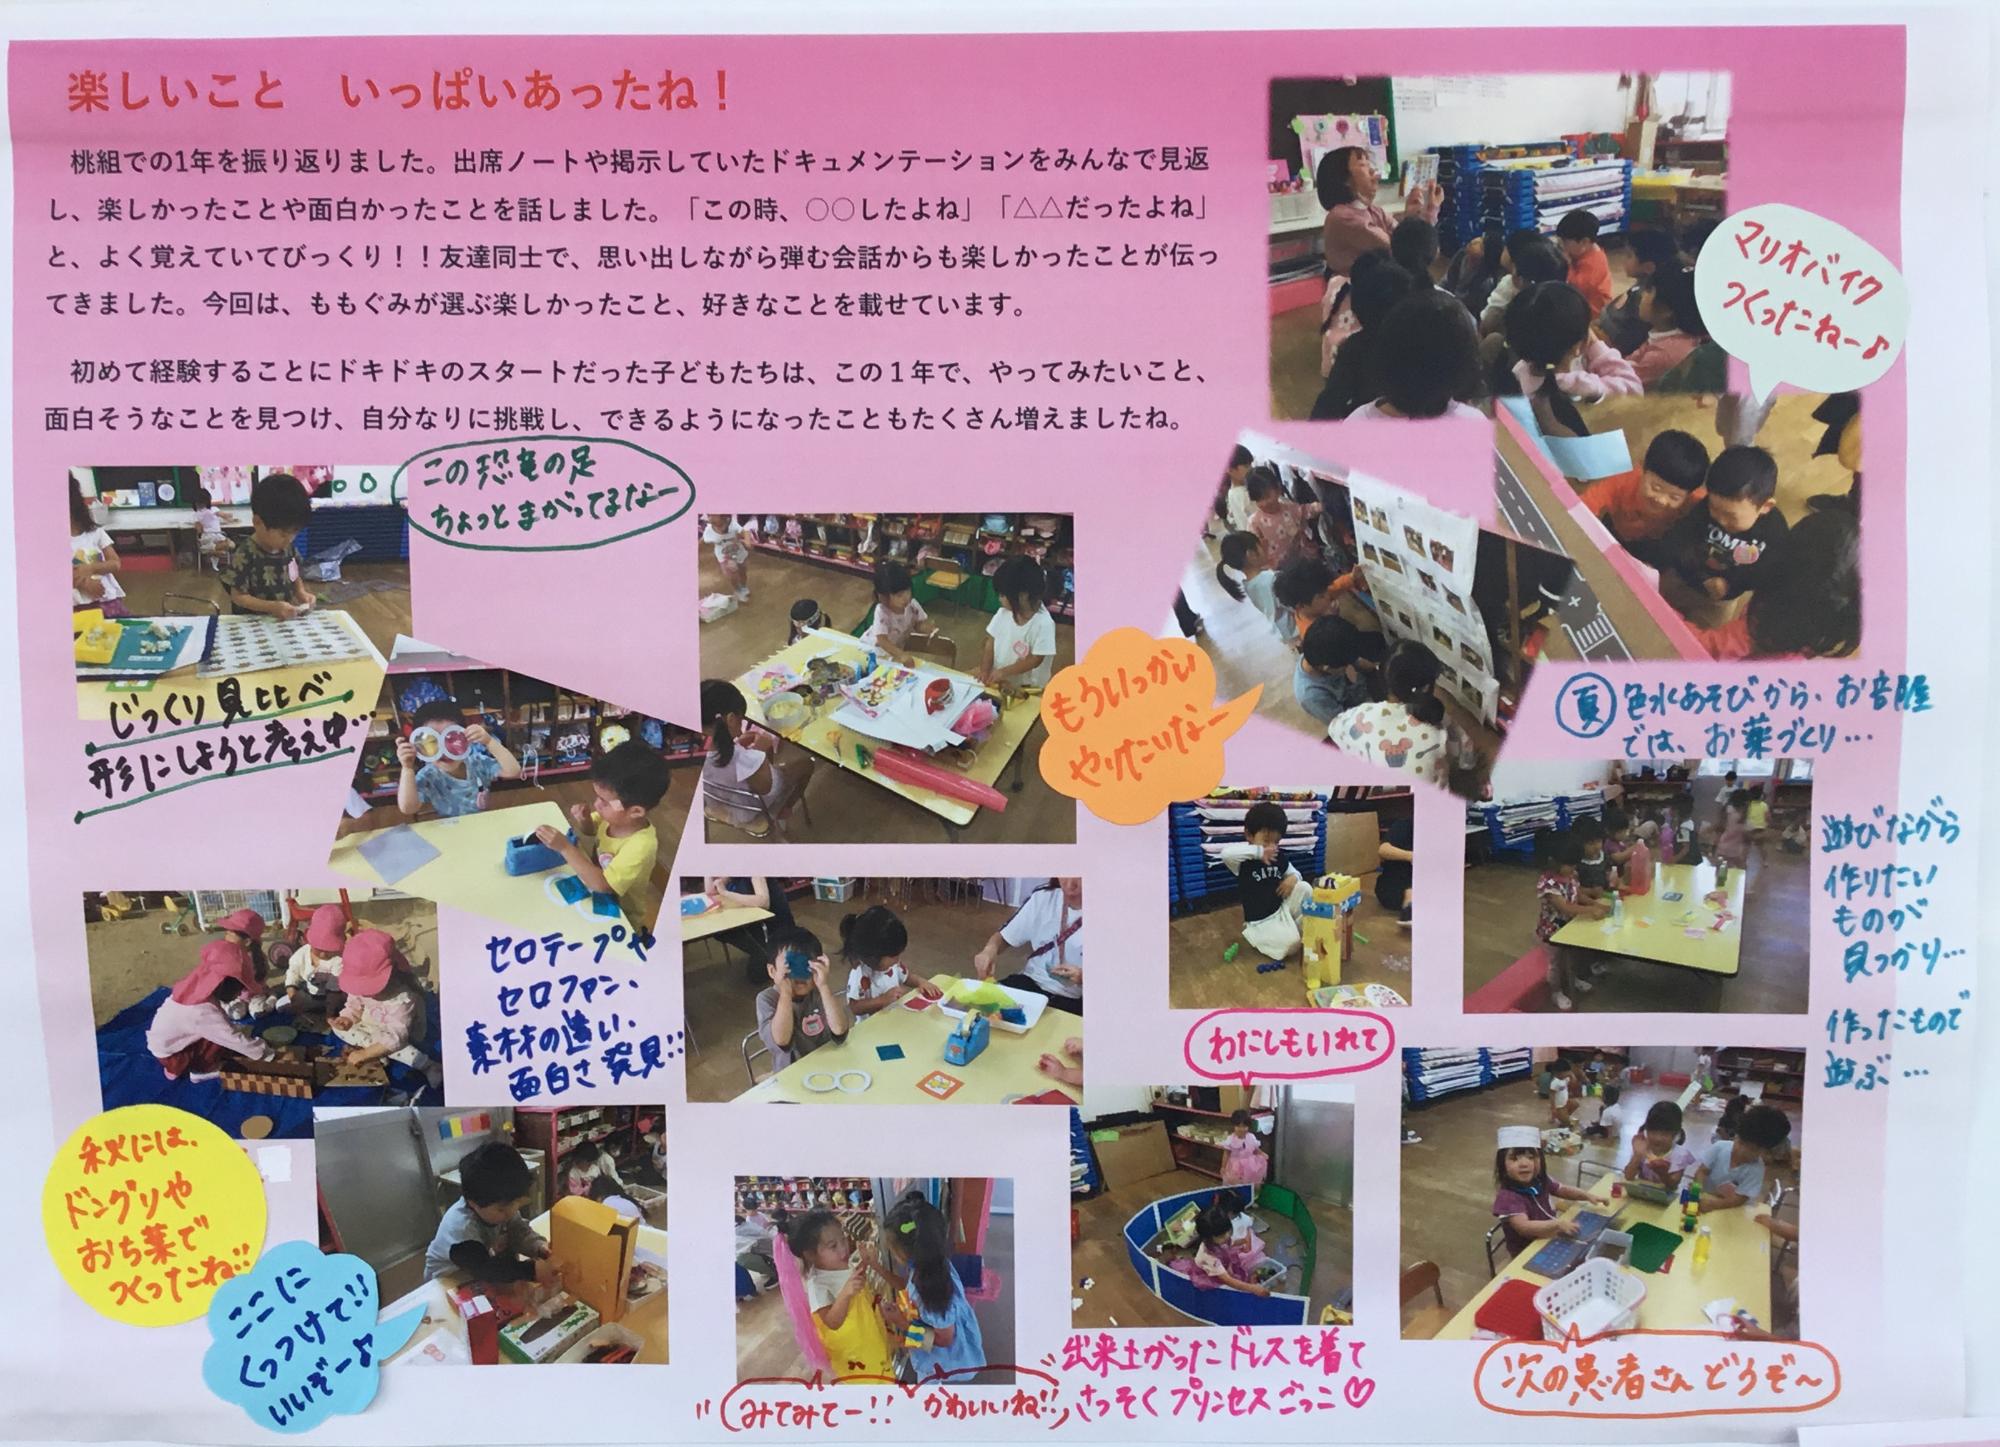 楽しいこと　いっぱいあったね！
桃組での1年を振り返りました。出席ノートや掲示していたドキュメンテーションをみんなで見返
し、楽しかったことや面白かったことを話しました。「この時、○○したよね」「△△だったよね」
と、よく覚えていてびっくり！！友達同士で、思い出しながら弾む会話からも楽しかったことが伝っ
てきました。今回は、ももぐみが選ぶ楽しかったこと、好きなことを載せています。
初めて経験することにドキドキのスタートだった子どもたちは、この１年で、やってみたいこと、
面白そうなことを見つけ、自分なりに挑戦し、できるようになったこともたくさん増えましたね。
マリオバイク
つくったねー♪
この恐竜の足
ちょっとまがってるなー
じっくり見比べ
形にしようと考え中…
もういっかい
やりたいなー
夏 色水あそびから、お部屋
では、お薬づくり…
遊びながら
作りたい
ものが
見つかり…
作ったもので
遊ぶ…
セロテープや
セロファン、
素材の違い、
面白さ発見!!
わたしもいれて
秋には、
ドングリや
おち葉で
つくったね!!
ここに
くっつけて!!
いいぞー♪
みてみてー!!
かわいいね!!
出来上がったドレスを着て
さっそくプリンセスごっこ♡
次の患者さんどうぞ〜